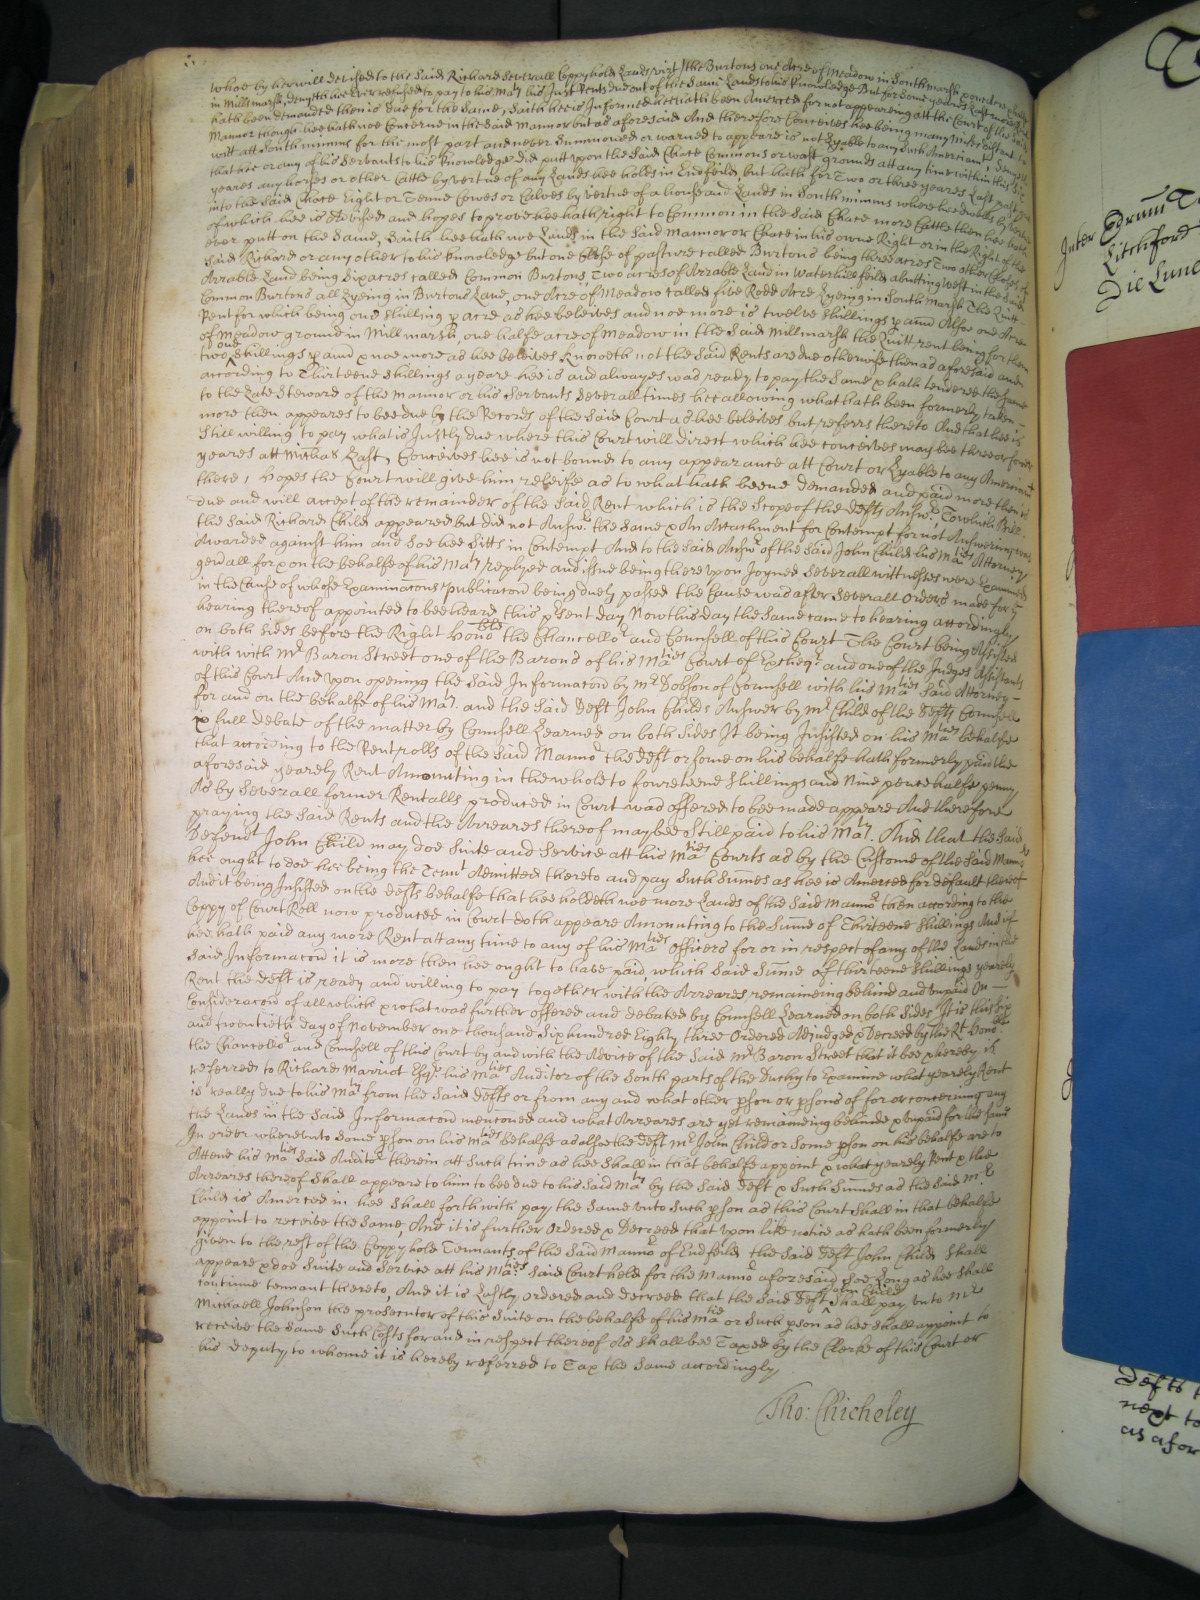 whoe by her will devised to the said Richard severall Coppyhold Lands vizt The Burtons one Acre of Meadow in Southmarsh
in Millmarsh, denyeth hee ever refused to pay to his Maty his Just Rents due out of the same Lands to his Knowledge But for some yeares Last more Rent
hath been demanded then is due for the same, saith hee is Informed hee hath been Amerced for not appeareing att the Court of the said
Mannor though hee hath noe Concerne in the said Mannor but as aforesaid And therefore Conceives hee being many miles distant
with att South mimms for the most part and never Summoned or warned to appeare is not Lyable to any such Amerciamts, denyeth
that hee or any of his Servants to his Knowledge did putt upon the said Chace Commons or wast grounds att any time within this six
yeares any horses or other Cattle by vertue of any Lands hee holds in Endfeild, but hath for Two or three yeares Last past
into the said Chace Eight or Tenne Cowes or Calves by vertue of a house and Lands in South mimms where hee dwells by vertue
of which hee is Advised and hopes to prove hee hath right to Common in the said Chace more Cattle then hee hath
ever putt on the same, Saith hee hath noe Lands in the said Mannor or Chace in his owne Right or in the Right of the
said Richard or any other to his Knowledge but one Close of pasture called Burtons being three acres Two other Closes of
Arrable Land being six acres called Common Burtons, Two acres of Arrable Land in Waterhill feild abutting west in the said
Common Burtons all Lyeing in Burtons Lane, one Acre of Meadow called five Rodd Acre Lyeing in South Marsh The Quitt
Rent for which being one Shilling p acre as hee beleives and noe more is twelve shillings p annd Alsoe one Acre
of Meadow ground in Millmarsh, one halfe acre of Meadow in the said Millmarsh the Quitt rent being for them
two one shillings p annd & noe more as hee beleives Knoweth not the said Rents are due otherwise then as aforesaid and
according to Thirteene shillings a yeare hee is and alwayes was ready to pay the same & hath tendered the same
to the Late Steward of the Mannor or his Servants severall times hee allowing what hath been formerly taken
more then appeares to bee due by the Records of the said Court as hee beleives but referrs thereto And that hee is
still willing to pay what is Justly due where this Court will direct which hee conceives may bee three or foure
yeares att Michas Last, Conceives hee is not bound to any appearance att Court or Lyable to any Amerciamt
there, hopes the Court will give him releife as to what hath beene demanded and paid more then is
due and will accept of the remainder of the said Rent which is the scope of the defts Answr. To which Bill
the said Richard Child appeared but did not Answr. the same & An Attachment for Contempt for not Answering was
Awarded against him and soe hee sitts in Contempt And to the said Answr of the said John Child his Maties Attorney
gen'all for & on the behalfe of his Maty replyed and issue being thereupon Joyned Severall wittnesses were Examined
in the Cause of whose Examinacons Publicacon being duely passed the Cause was after Severall orders made for ye
hearing thereof appointed to bee heard this psent day Now this day the same came to hearing accordingly
on both sides before the Right Honoble the Chancellor and Counsell of this Court The Court being Assisted
with with Mr Baron Street one of the Barons of his Maties Court of Excheqr. and one of the Judges Assistants
of this Court And upon opening the said Informacon by Mr Dobson of Counsell with his Maties said Attorney
for and on the behalfe of his Maty. and the said deft John Childs Answer by Mr Child of the defts Counsell
& full debate of the matter by Counsell Learned on both sides It being Insisted on his Maties behalfe
that according to the Rentrolls of the said Mannor the deft or some on his behalfe hath formerly paid the
aforesaid yearely Rent Amounting in the whole to foureteene shillings and Nine pence halfe penny
As by severall former Rentalls produced in Court was offered to bee made appeare And therefore
praying the said Rents and the Arreares thereof may bee Still paid to his Maty. And that the said
Defendt John Child may doe Suite and Service att his Maties Courts as by the Custome of the said Mannor
hee ought to doe hee being the Tennt Admitted thereto and pay such summes as hee is Amerced for default thereof
And it being Insisted on the defts behalfe that hee holdeth noe more Lands of the said Mannor then according to the
Coppy of Court Roll now produced in Court doth appeare Amounting to the Summe of Thirteene shillings And if
hee hath paid any more Rent att any time to any of his Maties officers for or in respect of any of the Lands in the
said Informacon it is more then hee ought to have paid, which said Summe of thirteene shillings yearely
Rent the deft is ready and willing to pay together with the Arreares remaineing behind and unpaid On
Consideracon of all which & what was further offered and debated by Counsell Learned on both sides It is this six
and twentieth day of November one thousand six hundred Eighty three Ordered Adjudged & Decreed by the Rt Honoble
the Chancellor and Counsell of this Court by and with the Advice of the said Mr Baron Street that it bee & hereby is
referred to Richard Marriot Esqr. his Maties Auditor of the South parts of the Duchy to Examine what yearely Rent
is really due to his Maty from the said defts or from any and what other pson or psons of for or concerning any
the Lands in the said Informacon menconed and what Arreares are yet remaineing behinde & unpaid for the same
In order whereunto some pson on his Maties behalfe as alsoe the deft Mr John Child or some pson on his behalfe are to
Attend his Maties said Auditor therein att such time as hee shall in that behalfe appoint & what yearely Rent & the
Arreares thereof shall appeare to him to bee due to his said Maty by the said deft & such summes as the said Mr
Child is Amerced in hee shall forthwith pay the same unto such pson as this Court shall in that behalfe
appoint to receive the same, And it is further Ordered & Decreed that upon like notice as hath been formerly
given to the rest of the Coppyhold Tennants of the said Mannor of Endfeild the said deft John Child shall
appeare & doe Suite and Service att his Maties said Court held for the Mannor aforesaid soe Long as hee shall
continue tennant thereto, And it is Lastly ordered and decreed that the said deft John Child shall pay unto Mr
Michaell Johnson the prosecutor of this Suite on the behalfe of his Matie or such pson as hee shall appoint to
receive the same such Costs for and in respect thereof As shall bee Taxed by the Clerke of this Court or
his deputy to whome it is hereby referred to Tax the same accordingly
Tho: Chicheley
Inter
Litchford
Die Lune
Defts
next to
as afor